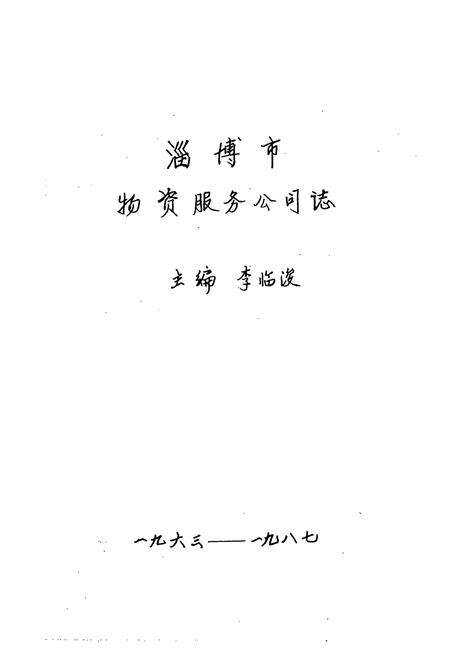 淄博市
物资服务公司誌
主编 李临浚
一九六三——一九八七